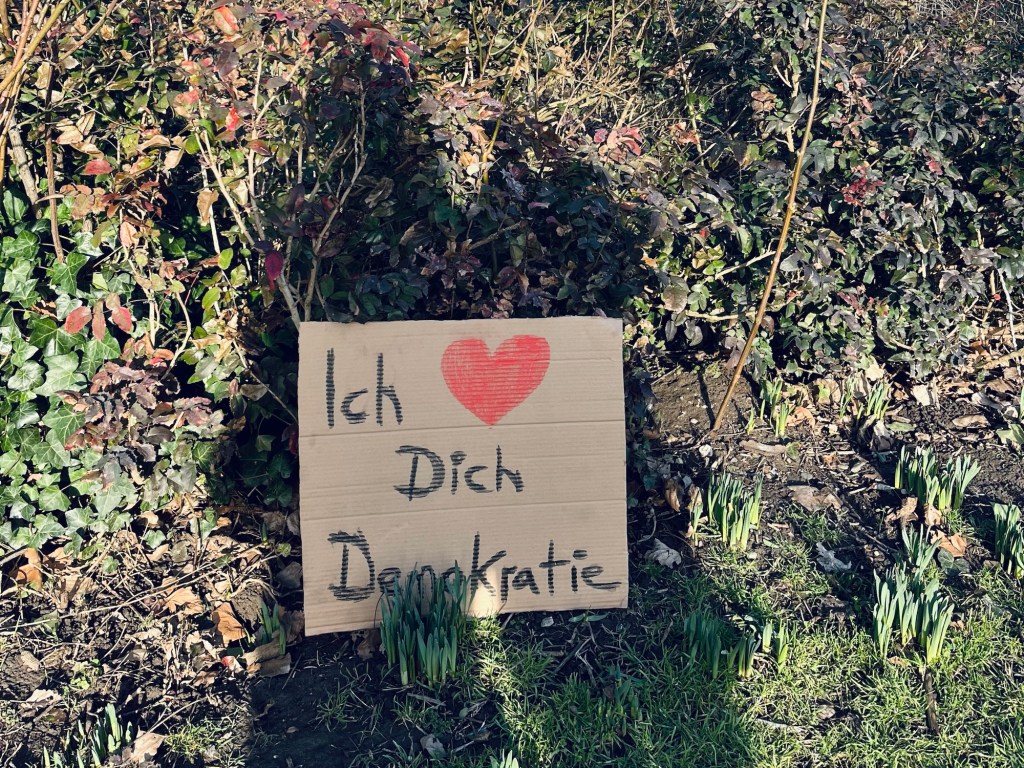 Ich ❤
Dich
Demokratie